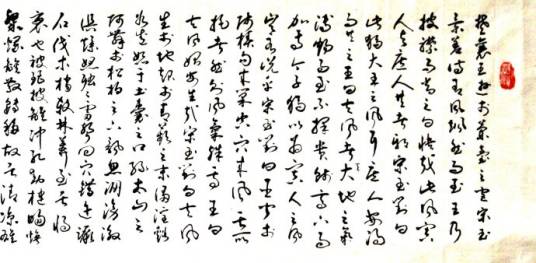 楚襄王遊於蘭臺之宮宋玉
景差侍有風颯然而至王乃
披襟而當之曰快哉此風寡
人所與庶人共者邪宋玉對曰
此獨大王之風耳庶人安得
而共之王曰夫風者天地之氣
溥暢而至不擇貴賤高下而
加焉今子獨以為寡人之風
豈有說乎宋玉對曰臣聞於
師枳句來巢空穴來風其所
托者然則風氣殊焉王曰
夫風始安生哉宋玉對曰夫風
生於地起於青蘋之末侵淫谿
谷盛怒於土囊之口緣太山之
阿舞於松柏之下飄忽淜滂激
颺熛怒耾耾雷聲迴穴錯迕蹶
石伐木梢殺林莽至其將
衰也被麗披離衝孔動楗眴煥
粲爛離散轉移故其清涼雄